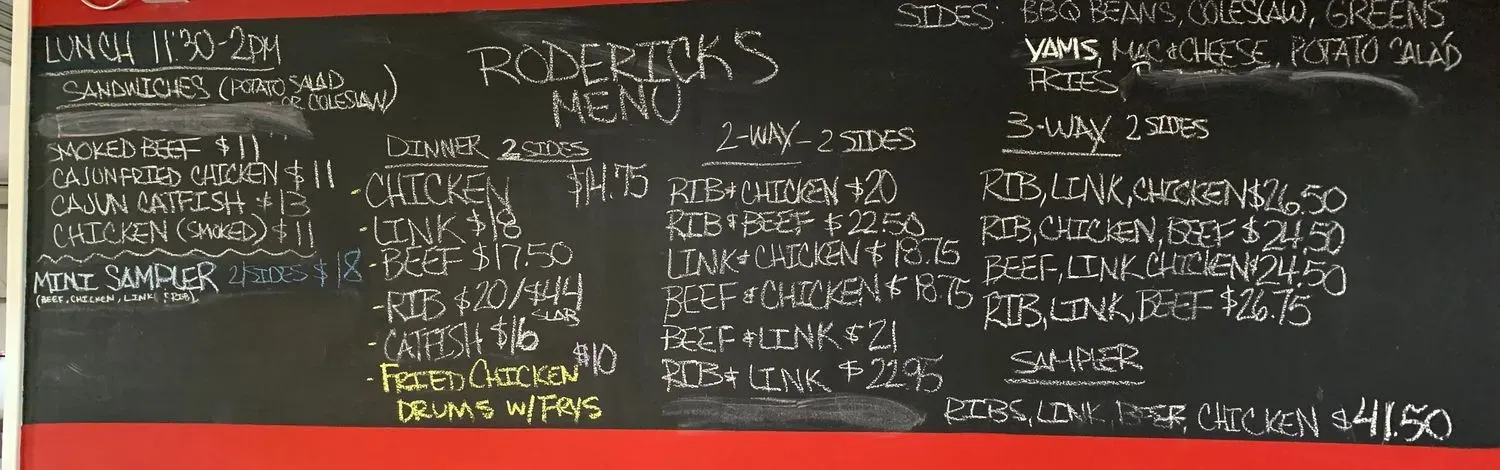 LUNCH 11:30-2PM
SANDWICHES (POTATO SALAD
OR COLESLAW)
SMOKED BEEF $11
CAJUN FRIED CHICKEN $11
CAJUN CATFISH $13
CHICKEN (SMOKED) $11
MINI SAMPLER 2/SIDES $18
(BEEF, CHICKEN, LINK, & RIB)
RODERICK'S
MENU
DINNER 2 SIDES
-CHICKEN $14.75
-LINK $18
-BEEF $17.50
-RIB $20/$44
SLAB
-CATFISH $16
-FRIED CHICKEN $10
DRUMS W/FRYS
2-WAY-2 SIDES
RIB & CHICKEN $20
RIB & BEEF $22.50
LINK & CHICKEN $18.75
BEEF & CHICKEN $18.75
BEEF & LINK $21
RIB & LINK $22.95
SIDES: BBQ BEANS, COLESLAW, GREENS
YAMS, MAC & CHEESE, POTATO SALAD
FRIES,
3-WAY 2 SIDES
RIB, LINK, CHICKEN $26.50
RIB, CHICKEN, BEEF $24.50
BEEF, LINK CHICKEN $24.50
RIB, LINK, BEEF $26.75
SAMPLER
RIBS, LINK, BEEF, CHICKEN $41.50